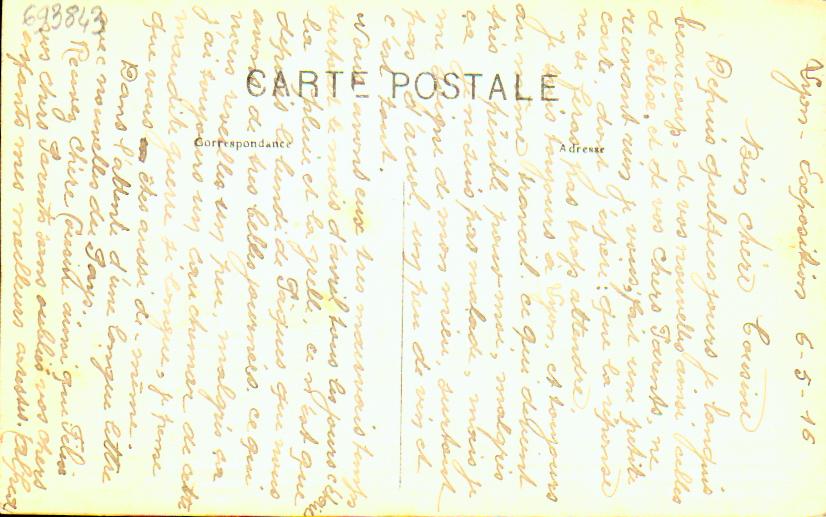 693843
CARTE POSTALE
Correspondance
Adresse
Lyon - Exposition 6-5-16
Bien chère Cousine
Depuis quelques jours je languis
beaucoup, de vos nouvelles ainsi celles
de Félix, et de vos chers Parents, ne
recevant rien je vous fait une petite
carte, dont j'espère que la réponse
ne se fera pas trop attendre.
Je suis toujours à Lyon, et toujours
du même travail ce qui devient
très pénible pour moi, malgrès
ça je ne suis pas malade, mais je
me soigne de mon mieu, surtout
pas d'alcool, un peu de vin et
c'est tout.
Nous avons eux très mauvais temps
surtout le mois d'avril tous les jours
la pluie et la grêle, ce n'est que
depuis le lundi de Pâques que nous
avons de très belles journées. ce qui
nous réveilles un peu, malgrès ça
j'ai toujours un cauchemar de cette
maudite guerre si longue, je pense
que vous êtes aussi de même.
Dans l'attent d'une longue lettre
avec nouvelles du Pays.
Recevez Chère Cousine ainsi que Félix
vos chers Parents sans oublier vos chers
enfants mes meilleurs amitiés.